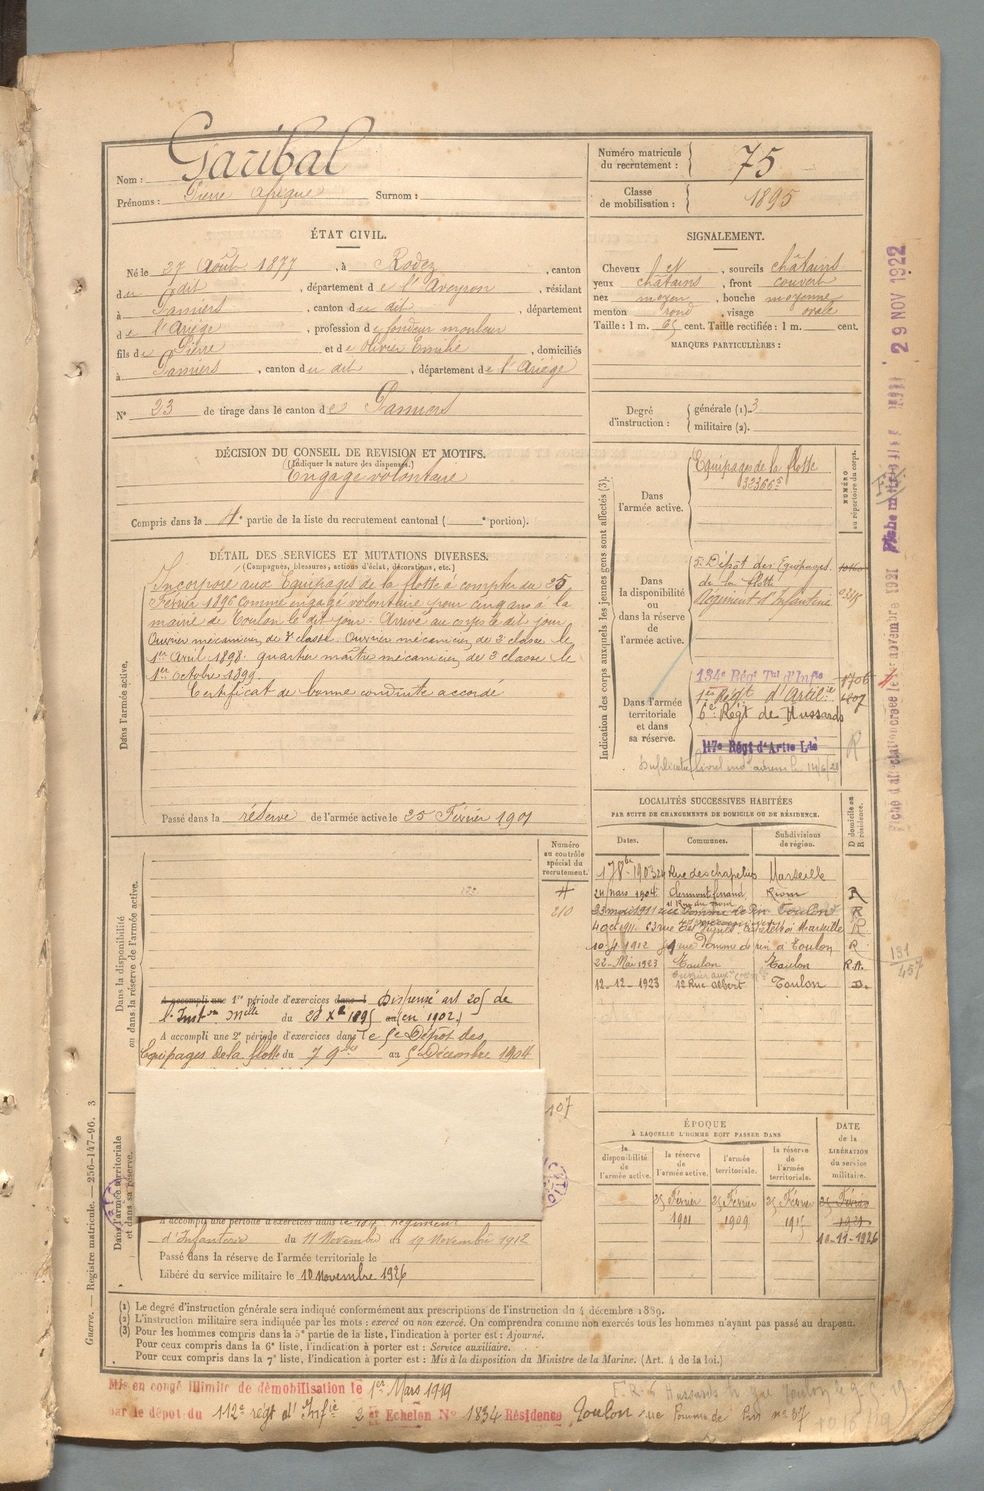 Nom : Garibal
Prénoms : Pierre Surnom :
Numéro matricule du recrutement : 75
Classe de mobilisation : 1895
ÉTAT CIVIL.
Né le 27 Août 1877, à Rodez, canton
du dit, département de l'Aveyron, résidant
à Pamiers, canton du dit, département
de l'Ariège, profession de fondeur mouleur
fils de Pierre et de Olivier Emilie, domiciliés
à Pamiers, canton du dit, département de l'Ariège
N° 23 de tirage dans le canton de Pamiers
SIGNALEMENT.
Cheveux et, sourcils châtains
yeux châtains, front couvert
nez moyen, bouche moyenne
menton rond, visage ovale
Taille : 1 m. 65 cent. Taille rectifiée : 1 m. cent.
MARQUES PARTICULIÈRES :
Degré d'instruction :
générale (1). 3
militaire (2).
DÉCISION DU CONSEIL DE REVISION ET MOTIFS.
(Indiquer la nature des dispenses.)
Engagé volontaire
Compris dans la 4e partie de la liste du recrutement cantonal ( e portion).
DÉTAIL DES SERVICES ET MUTATIONS DIVERSES.
(Campagnes, blessures, actions d'éclat, décorations, etc.)
Dans l'armée active.
Incorporé aux Equipages de la flotte à compter du 25
Février 1896 comme engagé volontaire pour cinq ans à la
mairie de Toulon le dit jour. Arrivé au corps le dit jour
Ouvrier mécanicien de 3e classe le
1er Avril 1898. quartier maître mécanicien de 3e classe le
1er Octobre 1899.
Certificat de bonne conduite accordé
Passé dans la réserve de l'armée active le 25 Février 1901
Indication des corps auxquels les jeunes gens sont affectés (3).
NUMÉRO au répertoire du corps.
Dans l'armée active.
Equipages de la flotte
Dans la disponibilité ou dans la réserve de l'armée active.
5e Dépôt des Equipages
de la flotte
Régiment d'Infanterie
Dans l'armée territoriale et dans sa réserve.
134e Régt Tal d'Infie
1er Régt d'Artilie
6e Régt de Hussards
117e Régt d'Artie Lde
R
LOCALITÉS SUCCESSIVES HABITÉES
PAR SUITE DE CHANGEMENTS DE DOMICILE OU DE RÉSIDENCE.
Dates. Communes. Subdivisions de région. D domicile ou R résidence.
1903 Rue des chapeliers Marseille
24 mars 1904 Clermont ferrand Riom R
Toulon R
4 oct 1911 Marseille R
1912 rue Pomme de pin à Toulon R
22 Mai 1923 Toulon Toulon R.A.
12-12-1923 12 Rue Albert Toulon D.
Dans la disponibilité ou dans la réserve de l'armée active.
Numéro au contrôle spécial du recrutement.
210
A accompli une 1re période d'exercices dans l Dispensé art 205 de
l'Instron Melle du 28 Xbre 1895 (en 1902)
A accompli une 2e période d'exercices dans le 5e Dépôt des
Equipages de la flotte du 7 9bre au 5 Décembre 1904
107
Dans l'armée territoriale et dans sa réserve.
A accompli une période d'exercices dans le Régiment
d'Infanterie du 11 Novembre au 19 Novembre 1912
Passé dans la réserve de l'armée territoriale le
Libéré du service militaire le 10 novembre 1926
ÉPOQUE
À LAQUELLE L'HOMME DOIT PASSER DANS
la disponibilité de l'armée active.
la réserve de l'armée active.
l'armée territoriale.
la réserve de l'armée territoriale.
DATE de la LIBÉRATION du service militaire.
25 Février 25 Février 25 Février 25 Février
1901 1909 1915 1921
10-11-1926
(1) Le degré d'instruction générale sera indiqué conformément aux prescriptions de l'instruction du 4 décembre 1889.
(2) L'instruction militaire sera indiquée par les mots : exercé ou non exercé. On comprendra comme non exercés tous les hommes n'ayant pas passé au drapeau.
(3) Pour les hommes compris dans la 5e partie de la liste, l'indication à porter est : Ajourné.
Pour ceux compris dans la 6e liste, l'indication à porter est : Service auxiliaire.
Pour ceux compris dans la 7e liste, l'indication à porter est : Mis à la disposition du Ministre de la Marine. (Art. 4 de la loi.)
Mis en congé illimité de démobilisation le 1er Mars 1919
par le dépôt du 112e régt d'Infie 2e Echelon N° 1834 Résidence Toulon rue Pomme de Pin no 37
Guerre. — Registre matricule. — 256-147-96. 3
29 NOV 1922
131
457